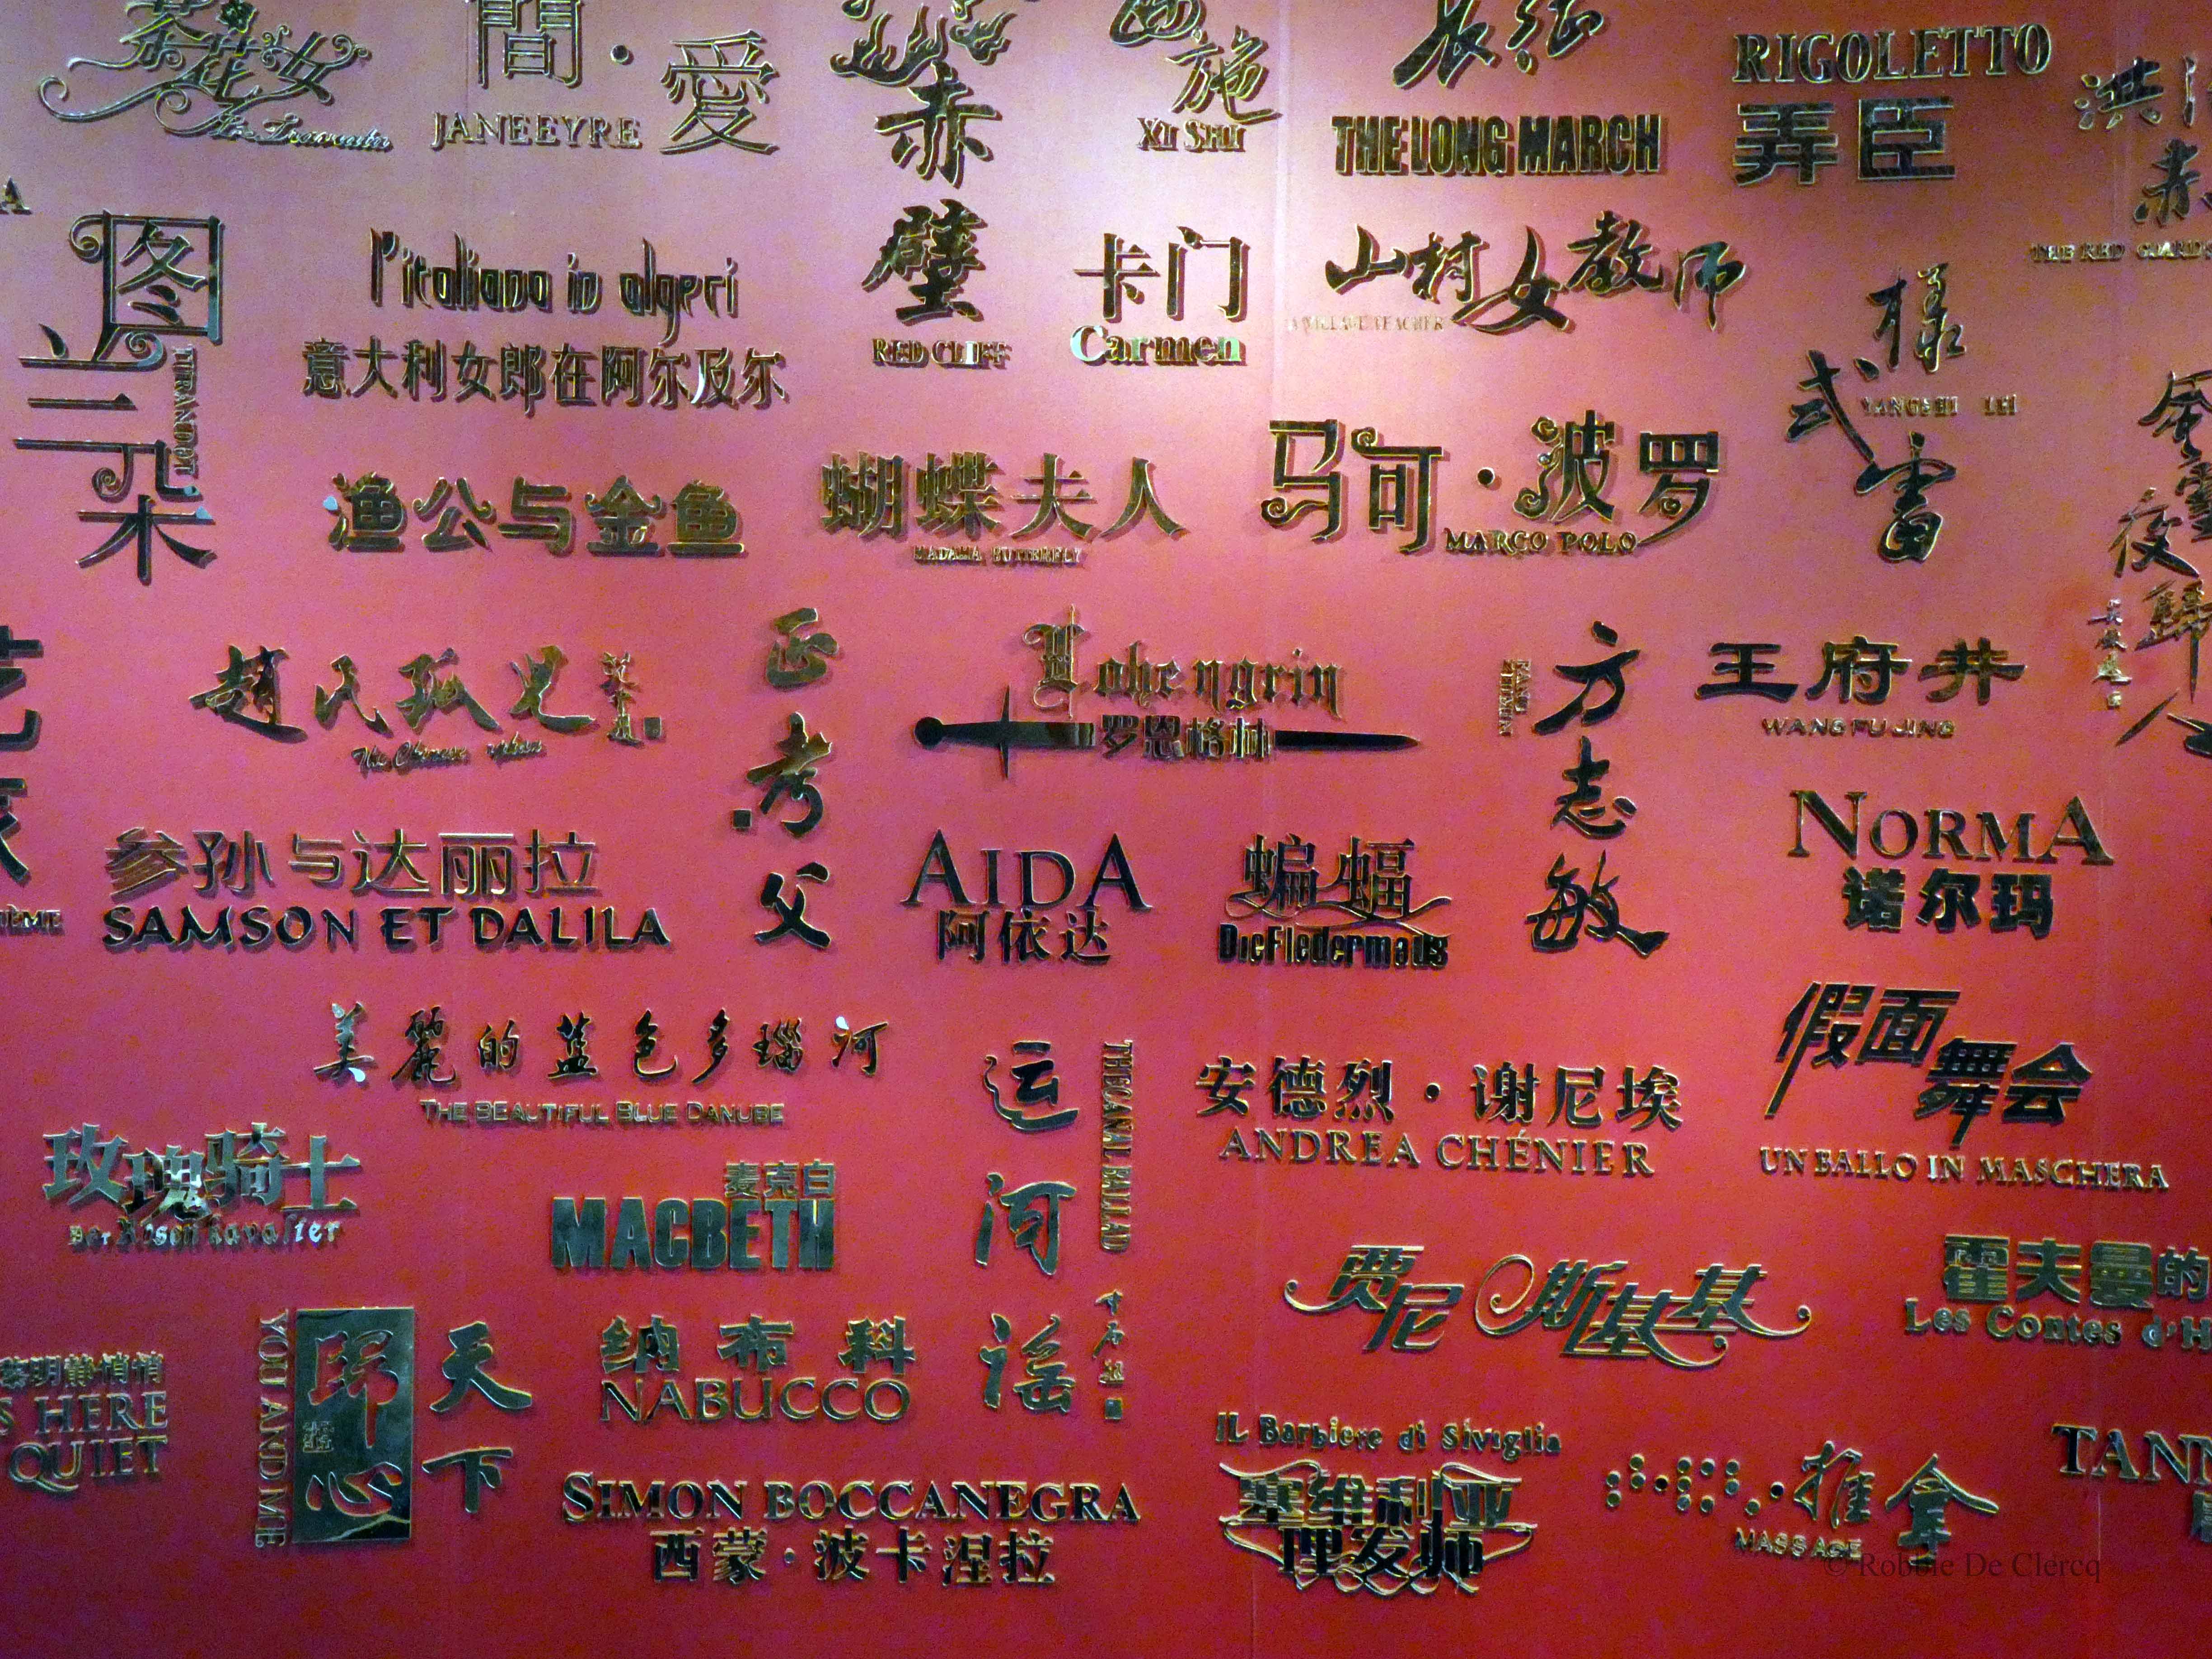 茶花女
La Traviata
間·愛
JANE EYRE
赤壁
RED CLIFF
西施
XI SHI
长征
THE LONG MARCH
RIGOLETTO
弄臣
洪
赤
THE RED GUARDS
A
图兰朵
TURANDOT
l'italiana in algeri
意大利女郎在阿尔及尔
卡门
Carmen
山村女教师
A VILLAGE TEACHER
樣式雷
YANGSHI LEI
渔公与金鱼
蝴蝶夫人
MADAMA BUTTERFLY
马可·波罗
MARCO POLO
趙氏孤児
The Chinese orphan
正考父
Lohengrin
罗恩格林
方志敏
FANG ZHIMIN
王府井
WANG FU JING
参孙与达丽拉
SAMSON ET DALILA
AIDA
阿依达
蝙蝠
Die Fledermaus
NORMA
诺尔玛
美麗的蓝色多瑙河
THE BEAUTIFUL BLUE DANUBE
运河谣
THE CANAL BALLAD
安德烈·谢尼埃
ANDREA CHÉNIER
假面舞会
UN BALLO IN MASCHERA
玫瑰骑士
Der Rosenkavalier
麦克白
MACBETH
贾尼斯基基
霍夫曼的
Les Contes d'H
黎明静悄悄
S HERE
QUIET
YOU AND ME
天下
纳布科
NABUCCO
SIMON BOCCANEGRA
西蒙·波卡涅拉
IL Barbiere di Siviglia
塞维利亚
理发师
推拿
MASSAGE
TAN
© Robbie De Clercq